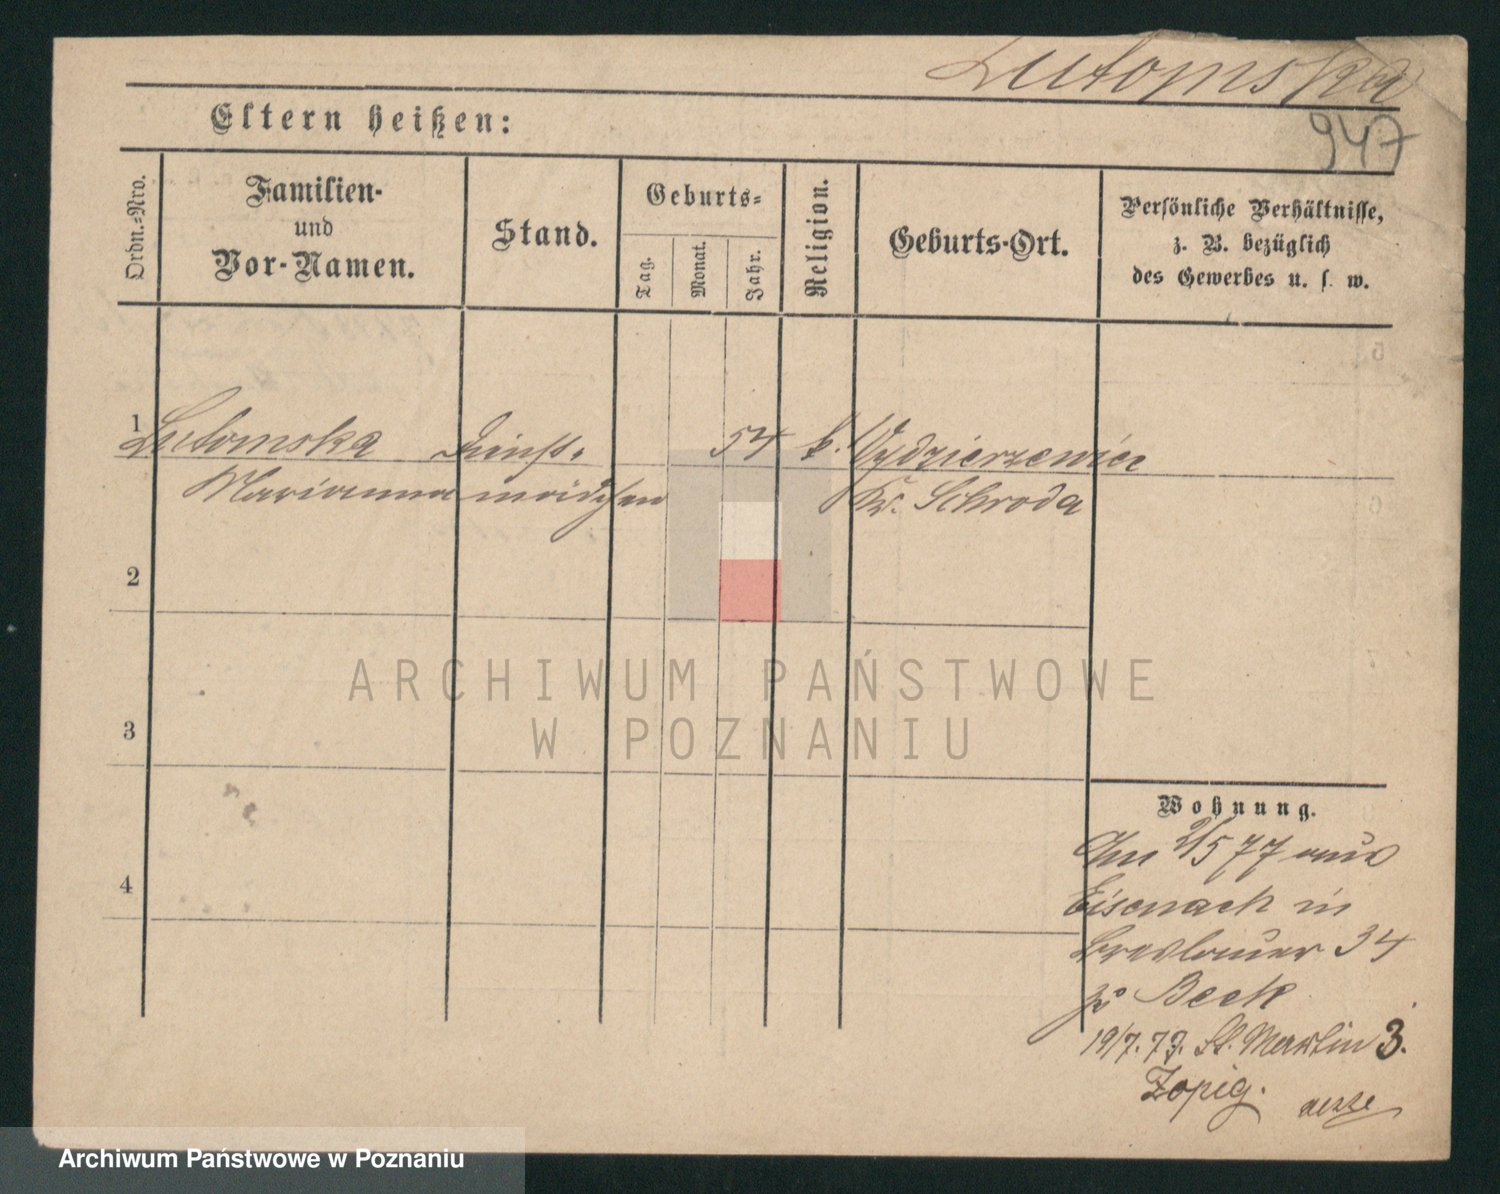 Lutomska
947
Eltern heißen:
Ordn.-Nro.
Familien-
und
Vor-Namen.
Stand.
Geburts-
Tag.
Monat.
Jahr.
Religion.
Geburts-Ort.
Persönliche Verhältnisse,
z. B. bezüglich
des Gewerbes u. s. w.
1
Lutomska Dienst- 54 k. Wydzierzewice
Marianna mädchen Kr. Schroda
2
3
4
ARCHIWUM PAŃSTWOWE
W POZNANIU
Wohnung.
Am 2/5 77 aus
Eisenach in
Breslauer 34
zu Beck
19/7. 79. St. Martin 3.
Archiwum Państwowe w Poznaniu